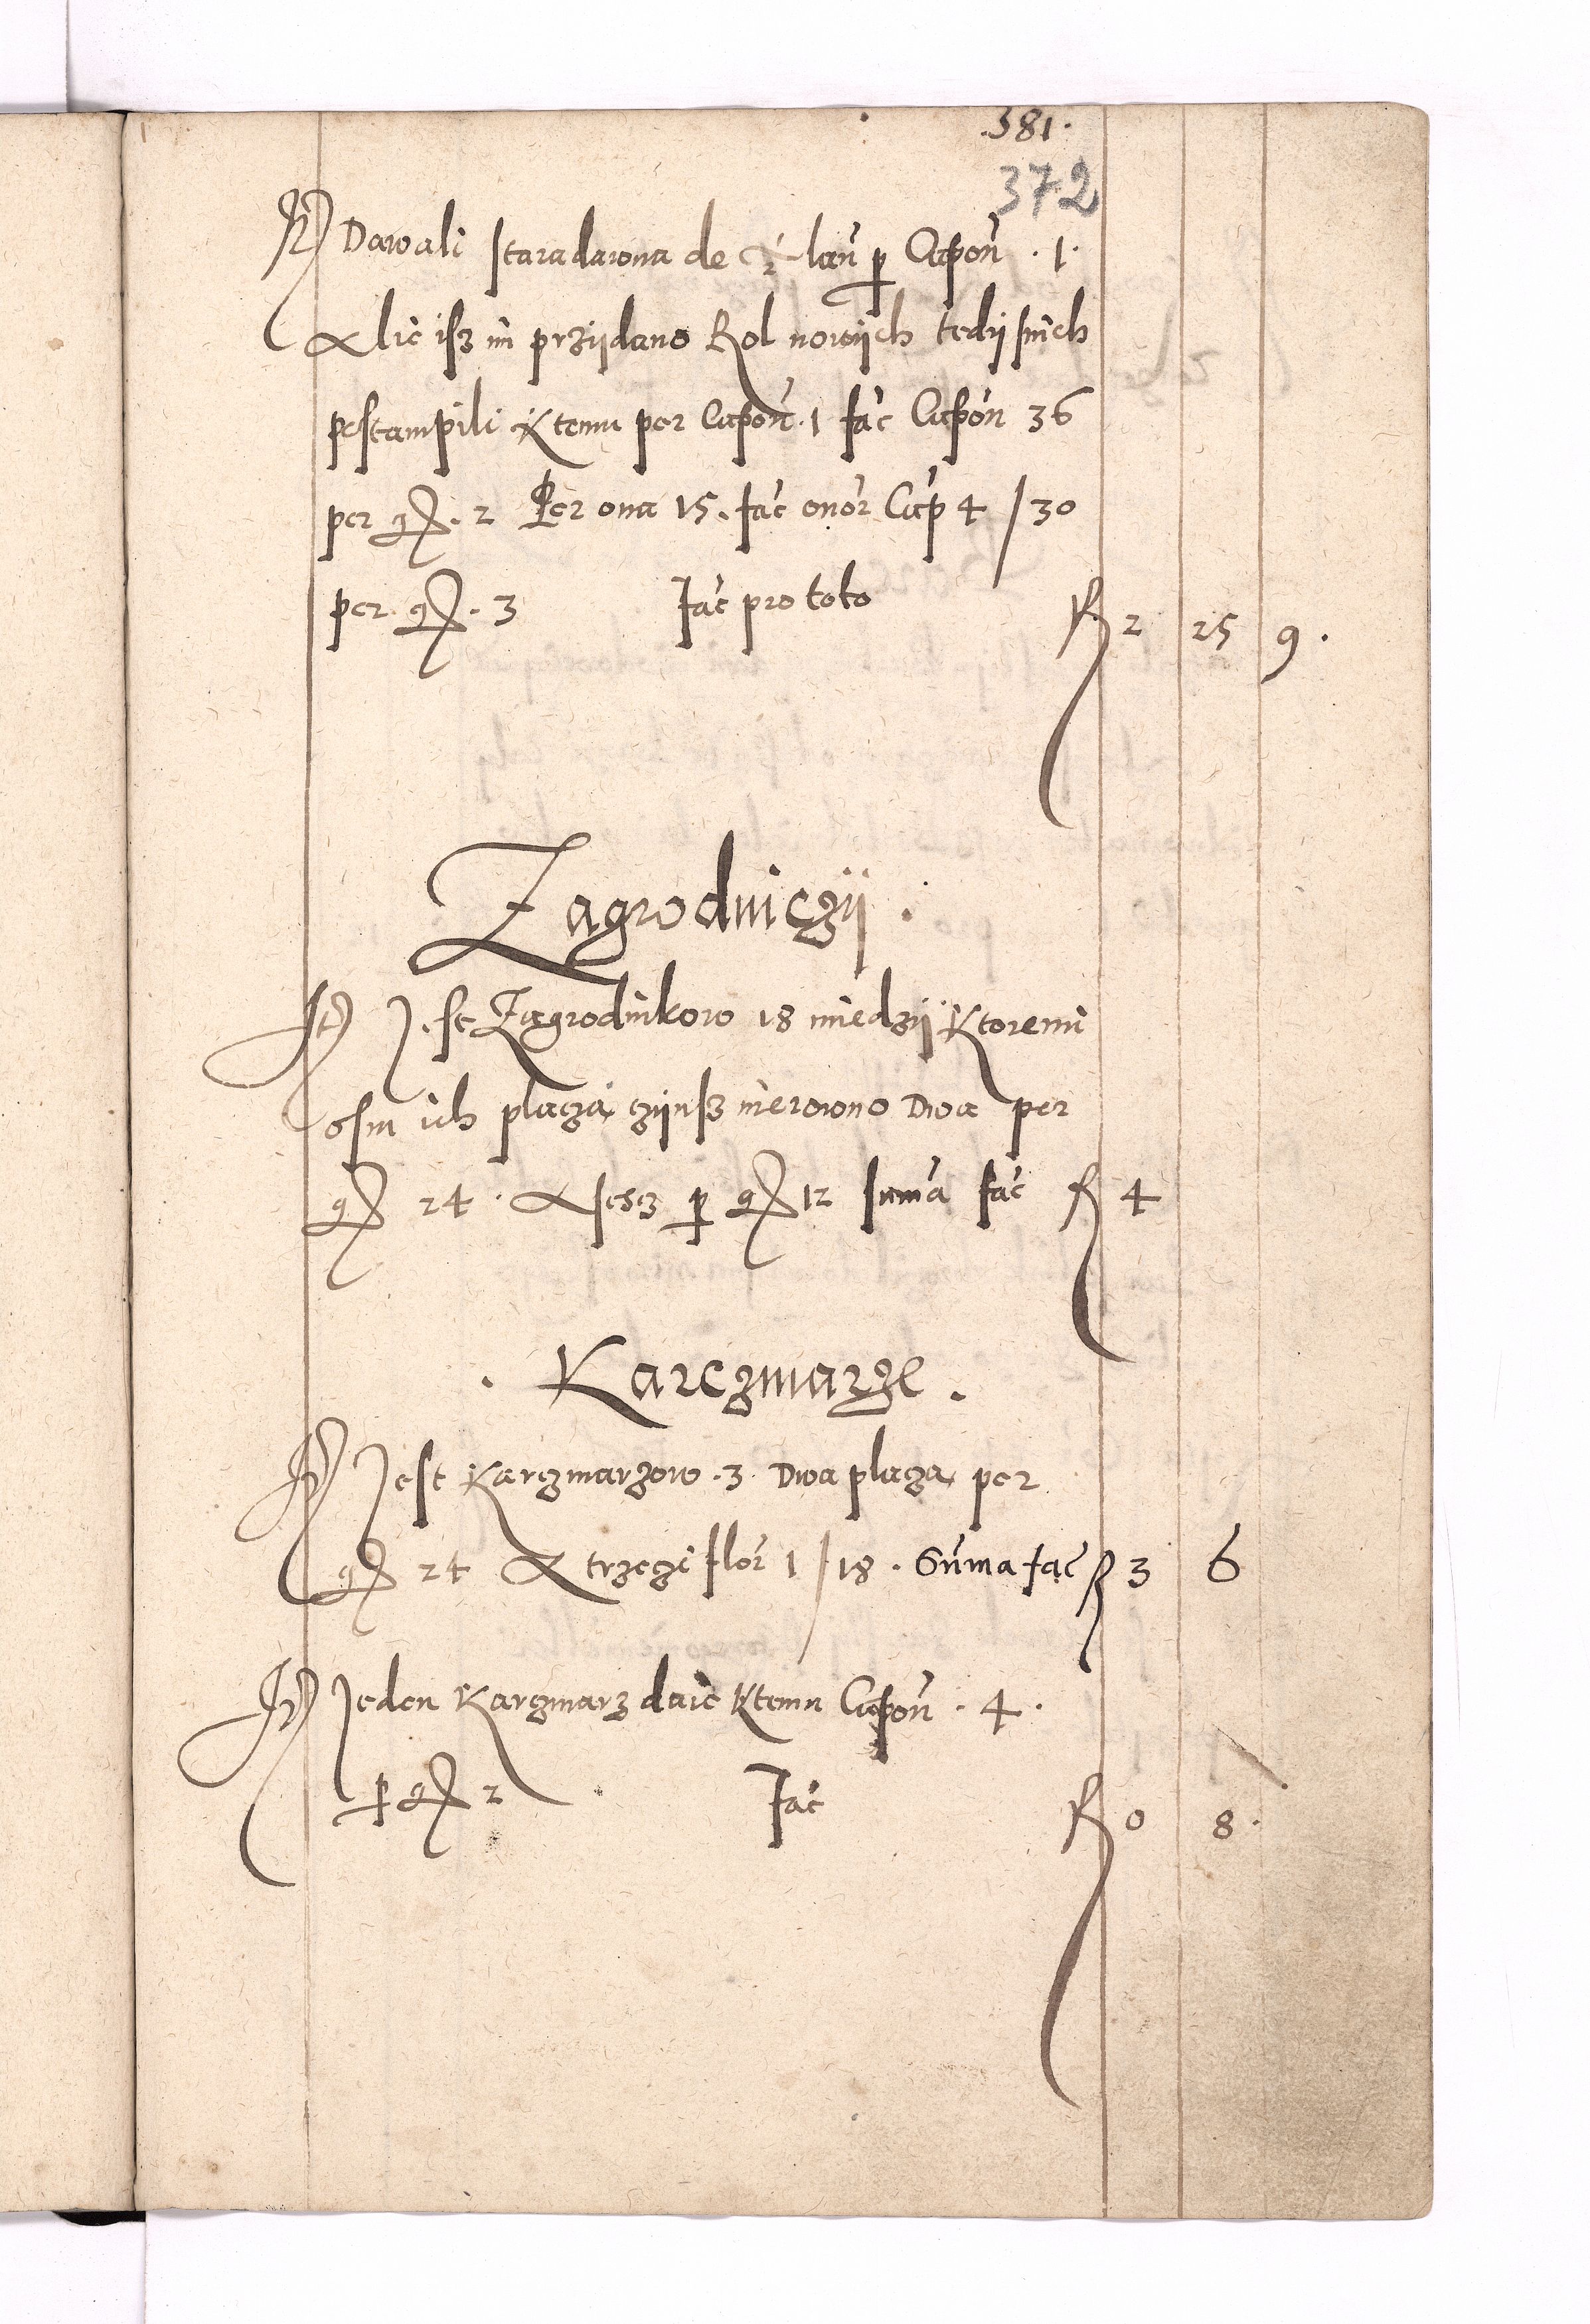 .381.
372
It Dawali staradawna de 1/2 lan p Capon . 1.
Alie isz im przijdano Rol nowijch tedij snich
postampili Ktemu per Capon . 1 fac Capon 36
per gr . 2 Per ova 15 . fac ovor Cap 4 / 30
per gr . 3 fac pro toto R 2 25 9 .
Zagrodniczij .
It Jest Zagrodnikow 18 miedzij Ktoremi
osm ich placzą czijnsz nierowno Dwa per
gr 24 . A sesz p gr 12 suma fac R 4
. Karczmarze .
It Jest Karczmarzow . 3 . Dwa placzą per
gr 24 A trzeczi flor 1 / 18 . Suma fac R 3 6
It Jeden Karczmarz daie Ktemu Capon . 4 .
p gr 2 fac R 0 8 .